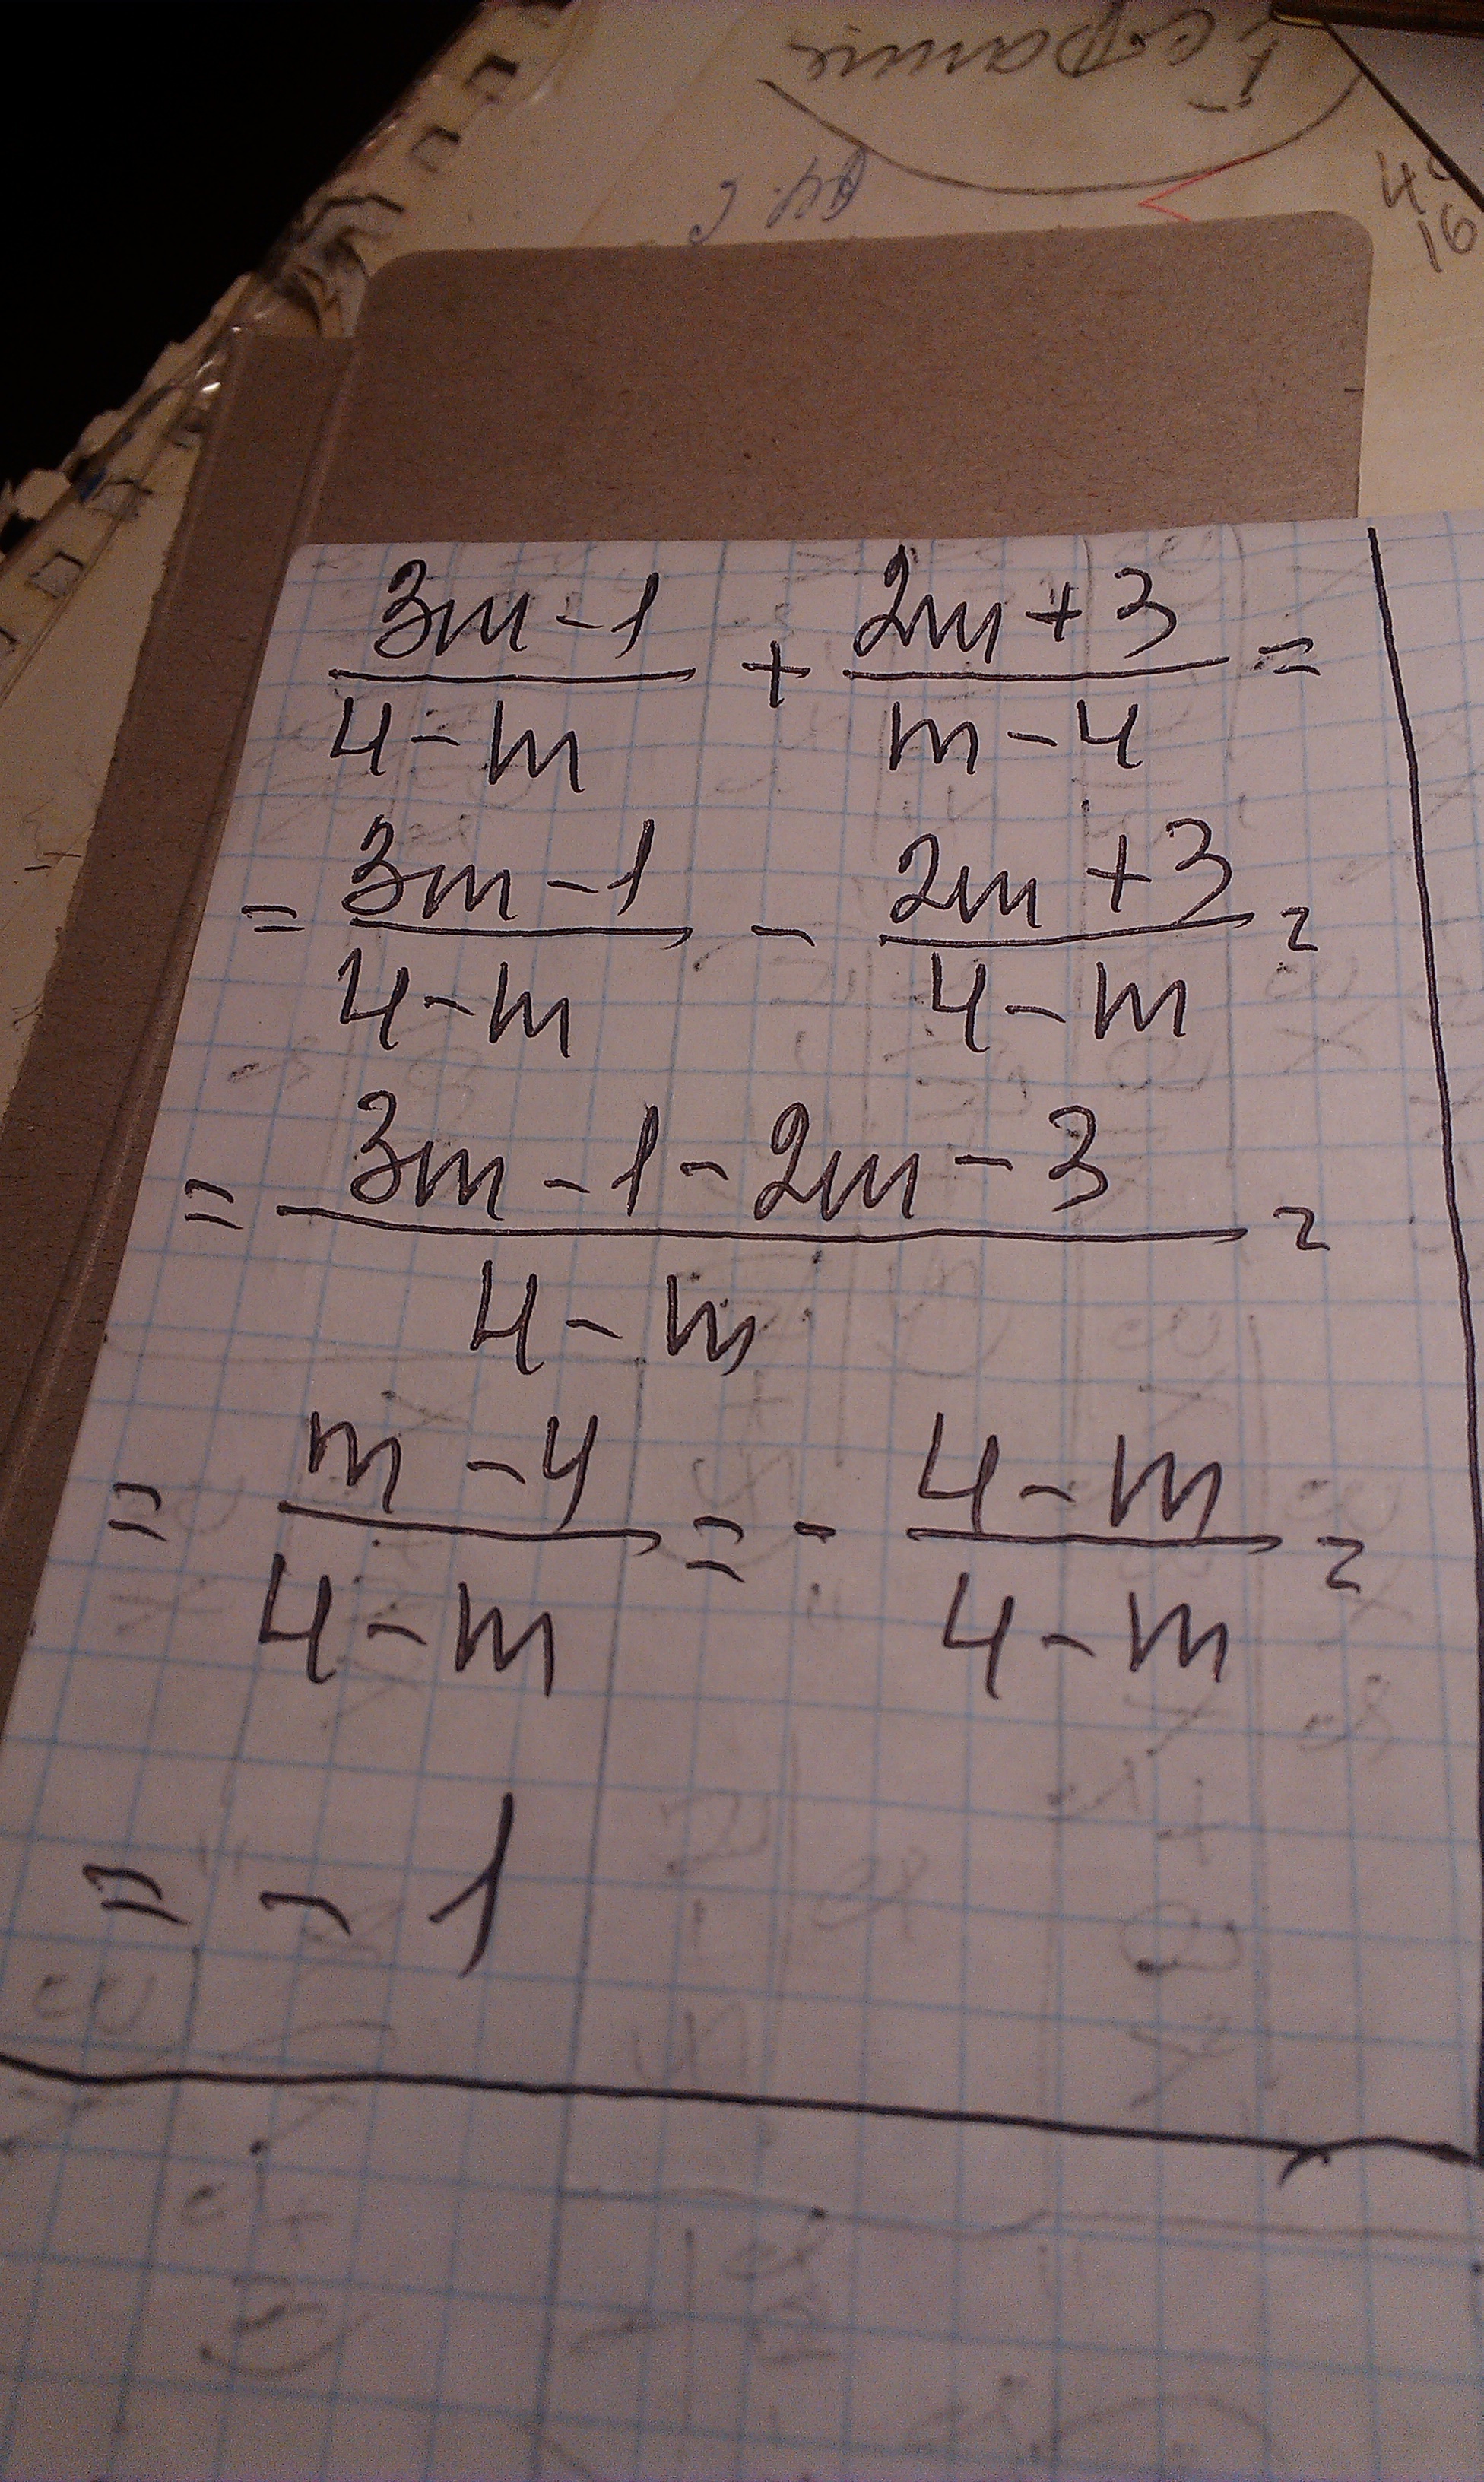 48
16
(3m-1)/(4-m) + (2m+3)/(m-4) =
= (3m-1)/(4-m) - (2m+3)/(4-m) =
= (3m-1-2m-3)/(4-m) =
= (m-4)/(4-m) = - (4-m)/(4-m) =
= -1